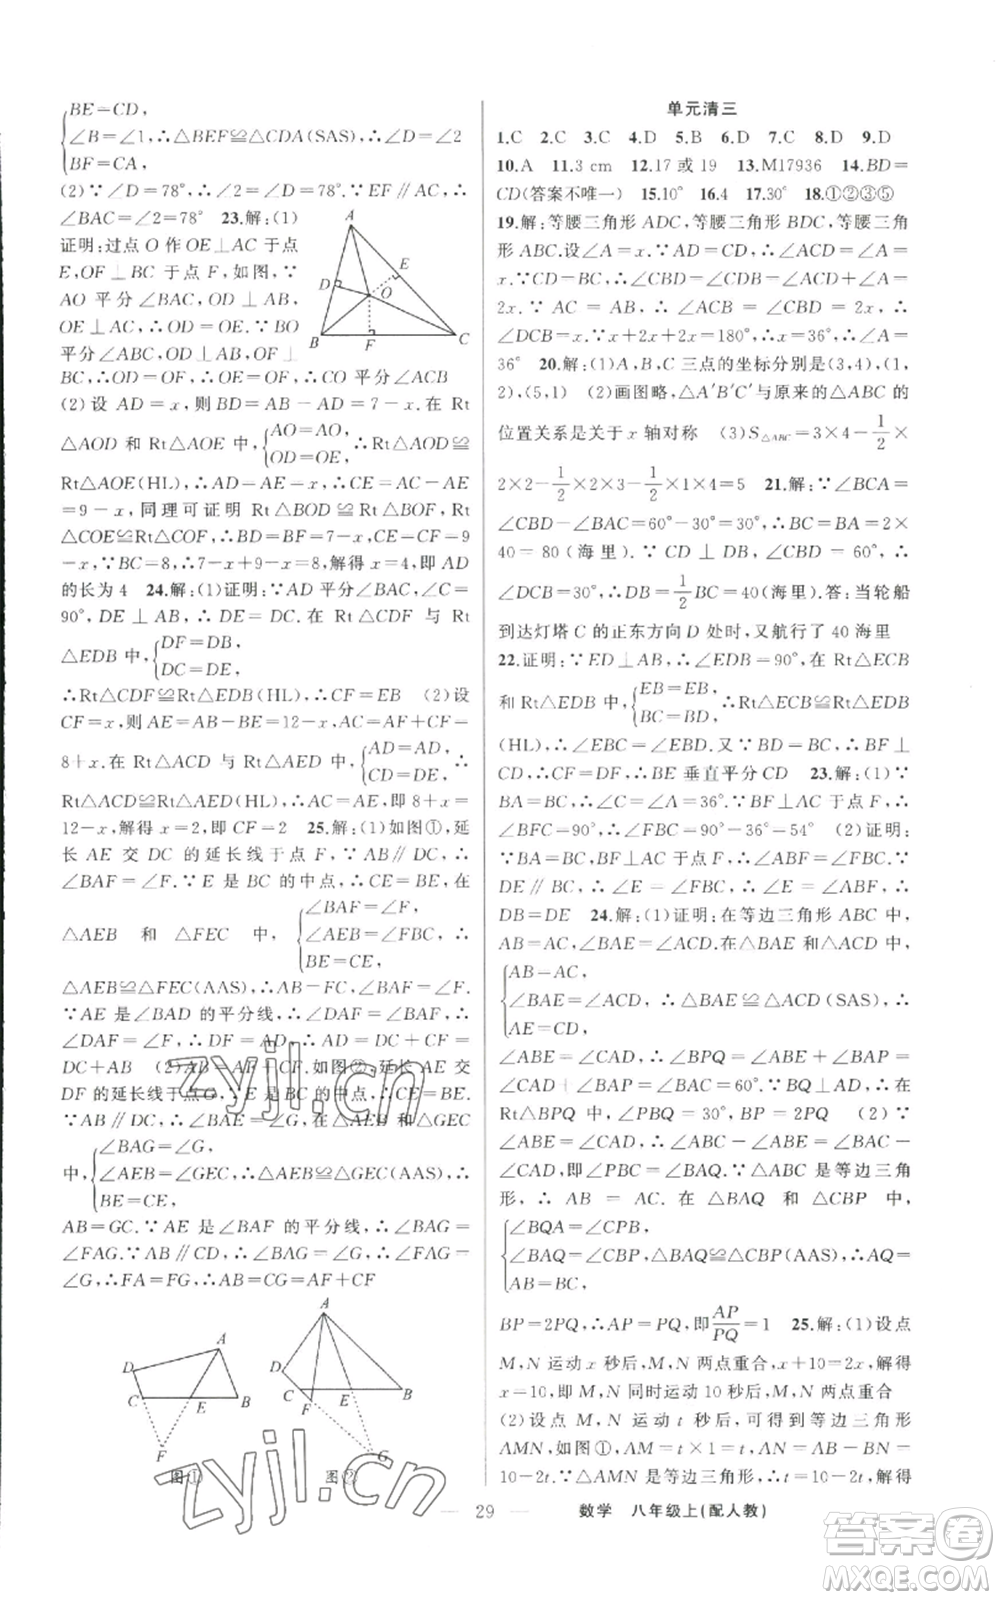 BE=CD,
∠B=∠1,∴△BEF≌△CDA(SAS),∴∠D=∠2
BF=CA,
(2)∵∠D=78°,∴∠2=∠D=78°.∵EF∥AC,∴
∠BAC=∠2=78° 23.解:(1)
证明:过点 O 作 OE⊥AC 于点
E,OF⊥BC 于点 F,如图,∵
AO 平分∠BAC,OD⊥AB,
OE⊥AC,∴OD=OE.∵BO
平分∠ABC,OD⊥AB,OF⊥
BC,∴OD=OF,∴OE=OF,∴CO 平分∠ACB
(2)设 AD=x,则 BD=AB-AD=7-x.在 Rt
△AOD 和 Rt△AOE 中,{AO=AO, OD=OE, ∴Rt△AOD≌
Rt△AOE(HL),∴AD=AE=x,∴CE=AC-AE
=9-x,同理可证明 Rt△BOD≌Rt△BOF,Rt
△COE≌Rt△COF,∴BD=BF=7-x,CE=CF=9
-x,∵BC=8,∴7-x+9-x=8,解得 x=4,即 AD
的长为 4 24.解:(1)证明:∵AD 平分∠BAC,∠C=
90°,DE⊥AB,∴DE=DC.在 Rt△CDF 与 Rt
△EDB 中,{DF=DB, DC=DE,
∴Rt△CDF≌Rt△EDB(HL),∴CF=EB (2)设
CF=x,则 AE=AB-BE=12-x,AC=AF+CF=
8+x.在 Rt△ACD 与 Rt△AED 中,{AD=AD, CD=DE, ∴
Rt△ACD≌Rt△AED(HL),∴AC=AE,即 8+x=
12-x,解得 x=2,即 CF=2 25.解:(1)如图①,延
长 AE 交 DC 的延长线于点 F,∵AB∥DC,∴
∠BAF=∠F.∵E 是 BC 的中点,∴CE=BE,在
△AEB 和 △FEC 中,{∠BAF=∠F, ∠AEB=∠FEC, BE=CE, ∴
△AEB≌△FEC(AAS),∴AB=FC,∠BAF=∠F.
∵AE 是∠BAD 的平分线,∴∠DAF=∠BAF,∴
∠DAF=∠F,∴DF=AD,∴AD=DC+CF=
DC+AB (2)AB=AF+CF.如图②,延长 AE 交
DF 的延长线于点 G,∵E 是 BC 的中点,∴CE=BE.
∵AB∥DC,∴∠BAE=∠G.在△AEB 和△GEC
中,{∠BAG=∠G, ∠AEB=∠GEC, BE=CE, ∴△AEB≌△GEC(AAS),∴
AB=GC.∵AE 是∠BAF 的平分线,∴∠BAG=
∠FAG.∵∠BAG=∠G,∴∠FAG=
∠G,∴FA=FG,∴AB=CG=AF+CF
图① 图②
单元清三
1.C 2.C 3.C 4.D 5.B 6.D 7.C 8.D 9.D
10.A 11.3 cm 12.17 或 19 13.M17936 14.BD=
CD(答案不唯一) 15.10° 16.4 17.30° 18.①②③⑤
19.解:等腰三角形 ADC,等腰三角形 BDC,等腰三角
形 ABC.设∠A=x.∵AD=CD,∴∠ACD=∠A=
x.∵CD=BC,∴∠B=∠CDB=∠ACD+∠A=
2x.∵AC=AB,∴∠ACB=∠B=2x,∴
∠DCB=x.∵x+2x+2x=180°,∴x=36°,∴∠A=
36° 20.解:(1)A,B,C 三点的坐标分别是(3,4),(1,
2),(5,1) (2)画图略,△A′B′C′与原来的△ABC 的
位置关系是关于 x 轴对称 (3)S△ABC=3×4-1/2×
2×2-1/2×2×3-1/2×4×1=5 21.解:∵∠BCA=
∠CBD-∠BAC=60°-30°=30°,∴BC=BA=2×
40=80(海里).∵CD⊥DB,∠CBD=60°,∴
∠DCB=30°,∴BD=1/2BC=40(海里).答:当轮船
到达灯塔 C 的正东方向 D 处时,又航行了 40 海里
22.证明:∵ED⊥AB,∴∠EDB=90°,在 Rt△ECB
和 Rt△EDB 中,{EB=EB, BC=BD, ∴Rt△ECB≌Rt△EDB
(HL),∴∠EBC=∠EBD.又∵BD=BC,∴BF⊥
CD,∴CF=DF,∴BE 垂直平分 CD 23.解:(1)∵
BA=BC,∴∠C=∠A=36°.∵BF⊥AC 于点 F,∴
∠BFC=90°,∴∠FBC=90°-36°=54° (2)证明:
∵BA=BC,BF⊥AC 于点 F,∴∠ABF=∠CBF.∵
DE∥BC,∴∠BED=∠CBF,∴∠BED=∠ABF,∴
DB=DE 24.解:(1)证明:在等边三角形 ABC 中,
AB=AC,∠BAE=∠ACD.在△BAE 和△ACD 中,
AB=AC,
∠BAE=∠ACD, ∴△BAE≌△ACD(SAS),∴
AE=CD,
∠ABE=∠CAD,∴∠BPQ=∠ABE+∠BAP=
∠CAD+∠BAP=∠BAC=60°.∵BQ⊥AD,∴在
Rt△BPQ 中,∠PBQ=30°,BP=2PQ (2)∵
∠ABE=∠CAD,∴∠ABC-∠ABE=∠BAC-
∠CAD,即∠PBC=∠BAQ.∵△ABC 是等边三角
形,∴AB=AC.在△BAQ 和△CBP 中,
∠BQA=∠CPB,
∠BAQ=∠CBP,∴△BAQ≌△CBP(AAS),∴AQ=
AB=BC,
BP=2PQ,∴AP=PQ,即AP/PQ=1 25.解:(1)设点
M,N 运动 x 秒后,M,N 两点重合,x+10=2x,解得
x=10,即 M,N 同时运动 10 秒后,M,N 两点重合
(2)设点 M,N 运动 t 秒后,可得到等边三角形
AMN,如图①,AM=t,AN=AB-BN=
10-2t.∵△AMN 是等边三角形,∴t=10-2t,解得
29 数学 八年级上(配人教)
zyjl.cn
zyjl.cn
答案圈
MXQE.COM